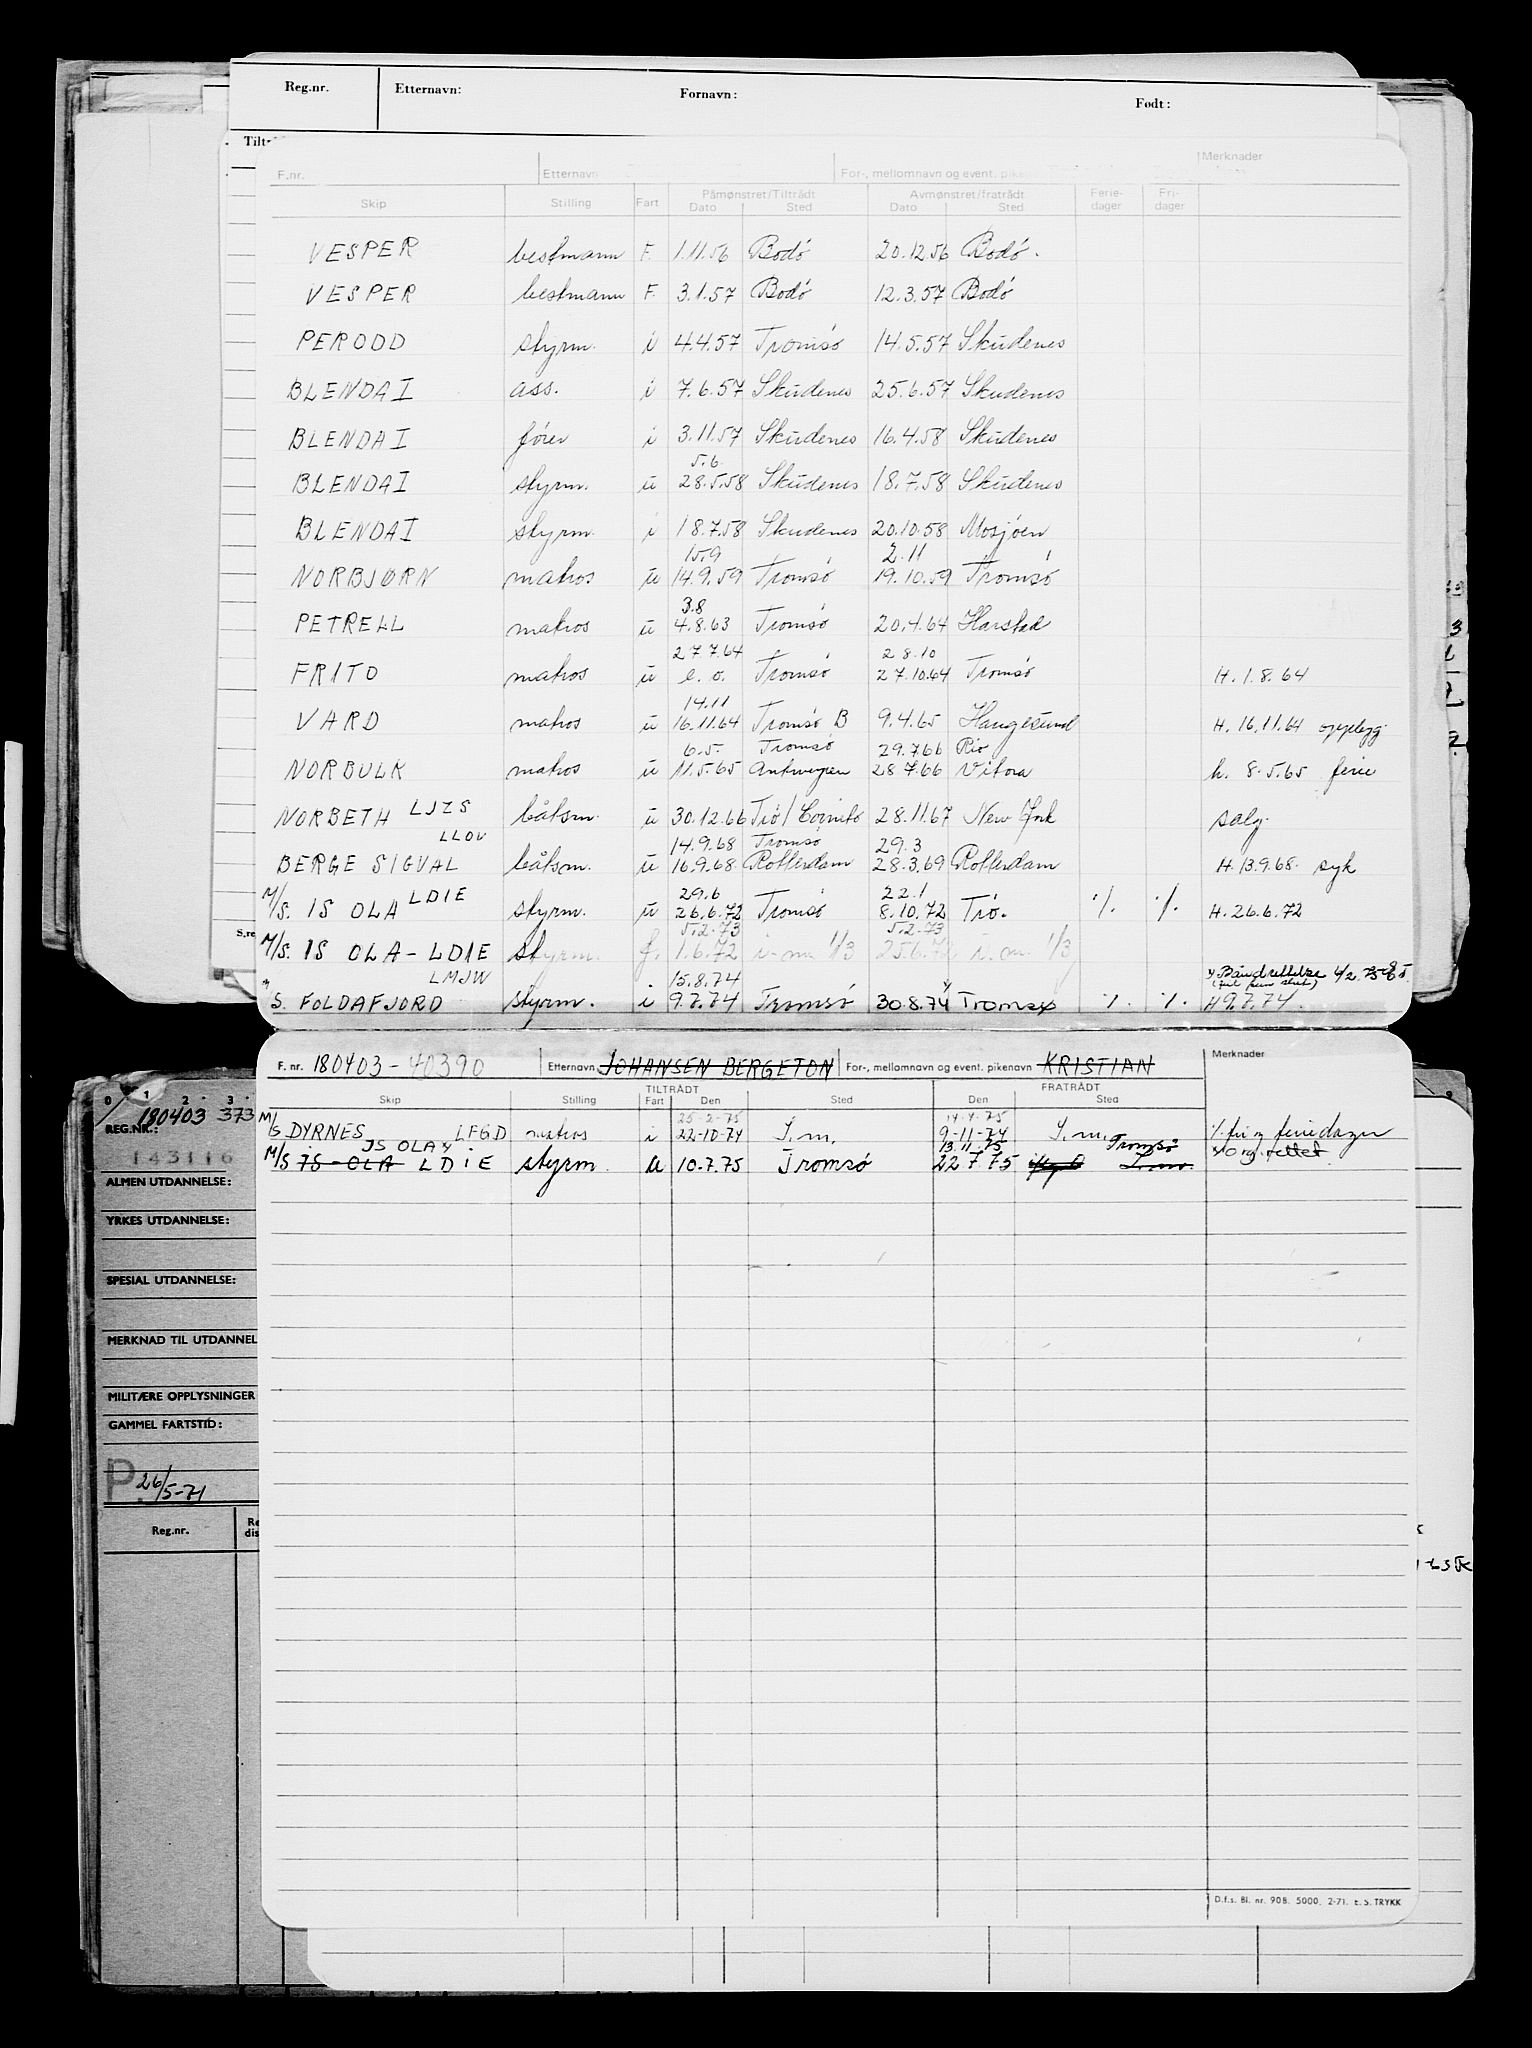 Reg.nr. Etternavn: Fornavn: Født:
Merknader
F.nr. Etternavn For-, mellomnavn og event.
Påmønstret/Tiltrådt Avmønstret/fratrådt Ferie- Fri-
Skip Stilling Fart Dato Sted Dato Sted dager dager
VESPER bestmann F. 1.11.56 Bodó 20.12.56 Bodó.
VESPER bestmann F. 3.1.57 Bodó 12.3.57 Bodó
PERODD styrm. i 4.4.57 Tromsó 14.5.57 Skudenes
BLENDA I ass. i 7.6.57 Skudenes 25.6.57 Skudenes
BLENDA I fórer i 3.11.57 Skudenes 16.4.58 Skudenes
5.6.
BLENDA I styrm. u 28.5.58 Skudenes 18.7.58 Skudenes
BLENDA I styrm. i 18.7.58 Skudenes 20.10.58 Mosjóen
15.9 2.11
NORBJØRN matros u 14.9.59 Tromsó 19.10.59 Tromsó
3.8
PETRELL matros u 4.8.63 Tromsó 20.4.64 Harstad
27.7.64 28.10
FRITO matros u e.o. Tromsó 27.10.64 Tromsó H. 1.8.64
14.11
VARD matros u 16.11.64 Tromsó B 9.4.65 Haugesund H. 16.11.64 opplegg
6.5. Tromsó 29.7.66 Rio
NORBULK matros u 11.5.65 Antwerpen 28.7.66 Vitora h. 8.5.65 ferie
NORBETH LJZS båtsm. u 30.12.66 Tró/ 28.11.67 New York salg.
LLOV 14.9.68 Tromsó 29.3
BERGE SIGVAL båtsm. u 16.9.68 Rotterdam 28.3.69 Rotterdam H. 13.9.68. syk
29.6 22.1
M/S. IS OLA LDIE styrm. u 26.6.72 Tromsó 8.10.72 Tró. ·/. ·/. H. 26.6.72
5.2.73 5.2.73
M/S. IS OLA - LDIE styrm. f. 1.6.72 i.m. 1/3 25.6.72 i.m. 1/3
LMJW 15.8.74
S. FOLDAFJORD styrm. i 9.7.74 Tromsó 30.8.74 Tromsø ·/. ·/. H 9.7.74.
F. nr. 180403-40390 Etternavn JOHANSEN BERGETON For-, mellomnavn og event. pikenavn KRISTIAN Merknader
TILTRÅDT FRATRÅDT
Skip Stilling Fart Den Sted Den Sted
25-2-75 14.4.75
M/S DYRNES LFGD matros i 22-10-74 I.m. 9-11-74 I.m. ·/. fri og feriedager
IS OLA 13.11.75 Tromsó
M/S IS-OLA LDIE styrm. u 10.7.75 Tromsó 22.7.75
0 1 2 3
180403 373
REG.NR.:
143116
ALMEN UTDANNELSE:
YRKES UTDANNELSE:
SPESIAL UTDANNELSE:
MERKNAD TIL UTDANNEL
MILITÆRE OPPLYSNINGER
GAMMEL FARTSTID:
P. 26/5-71
Reg.nr.
D.f.s. Bl. nr. 908. 5000. 2-71. E. S. TRYKK